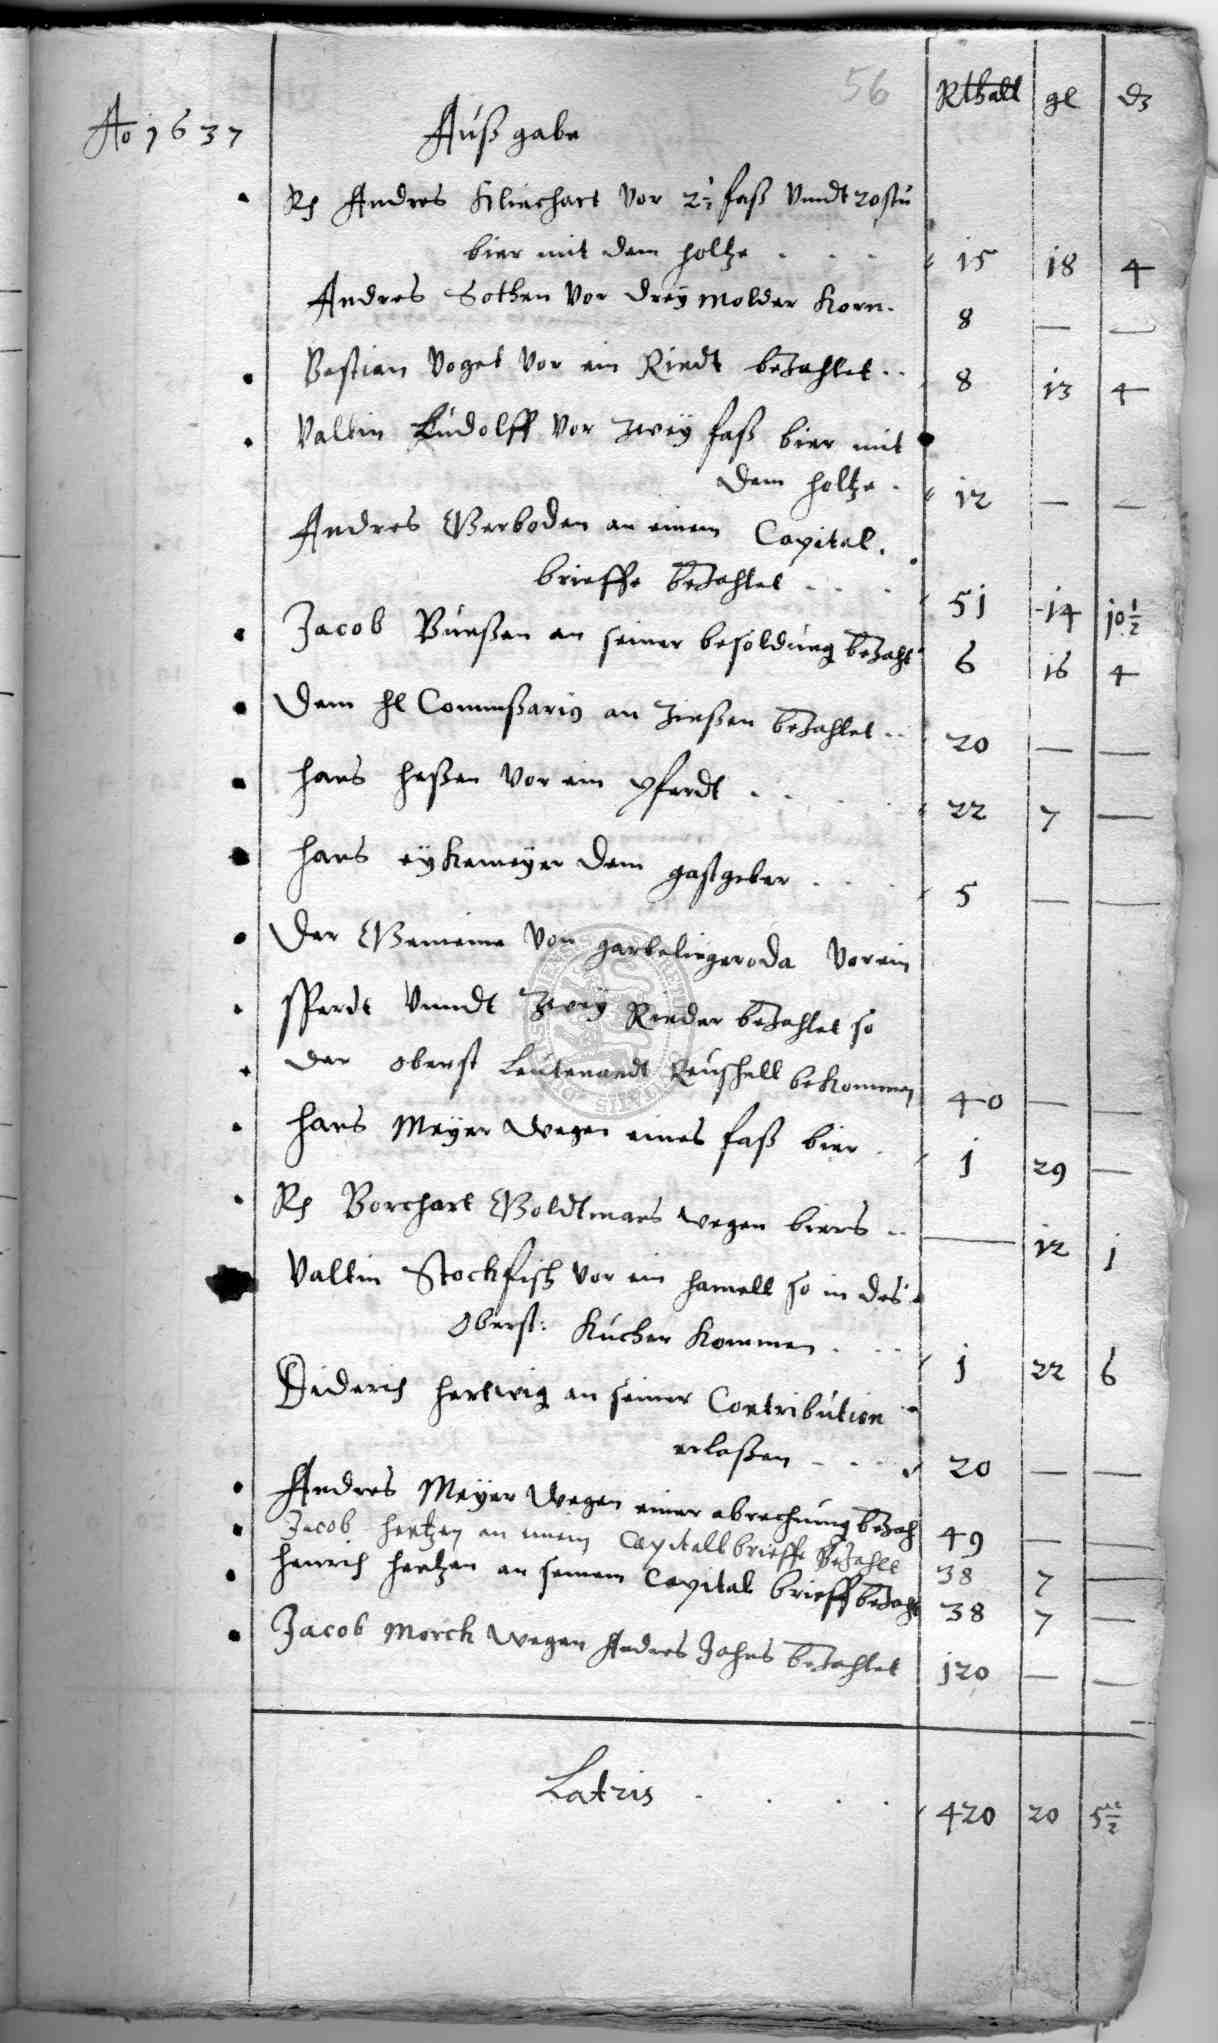 56
Rthall gl d
Ao 1637
Außgabe
Andres Klinchart vor 2½ faß Vundt 20 stu
bier mit dem holtze . . . 15 18 4
Andres Sothen vor dreÿ Molder Korn. 8 — —
Bastian Voget vor ein Riedt bezahlet .. 8 13 4
Valtin Ludolff vor zweÿ faß bier mit
dem holtze . 12 — —
Andres Gerboden an einem Capital.
brieffe bezahlet . . . 51 14 10½
Jacob Bunßen an seiner besoldung bezahl 6 16 4
Dem hl Commißario an Zinßen bezahlet .. 20 — —
hans heßen vor ein Pferdt . . . . 22 7 —
hans eÿkemeÿer dem gastgeber . . . 5 — —
Der Gemeine von gerbelingeroda vor ein
Pferdt Vundt zweÿ Rinder bezahlet so
der oberst Leutenandt Reuschell bekommen 40 — —
hans Meÿer wegen eines faß bier . 1 29 —
Borchart Goldtmans wegen biers .. — 12 1
Valtin Stockfisch vor ein hamell so in des
Oberst: Kuchen kommen . . . 1 22 6
Diderich hertwig an seiner Contribution
erlaßen . . . 20 — —
Andres Meÿer wegen einer abrechnung bezah 49 — —
Jacob hentzen an einem Capitallbrieffe bezahlt 38 7 —
henrich hentzen an seinem Capital brieff bezahl 38 7 —
Jacob Morch wegen Andres Jahns bezahlet 120 — —
Latris . . . . 420 20 5½